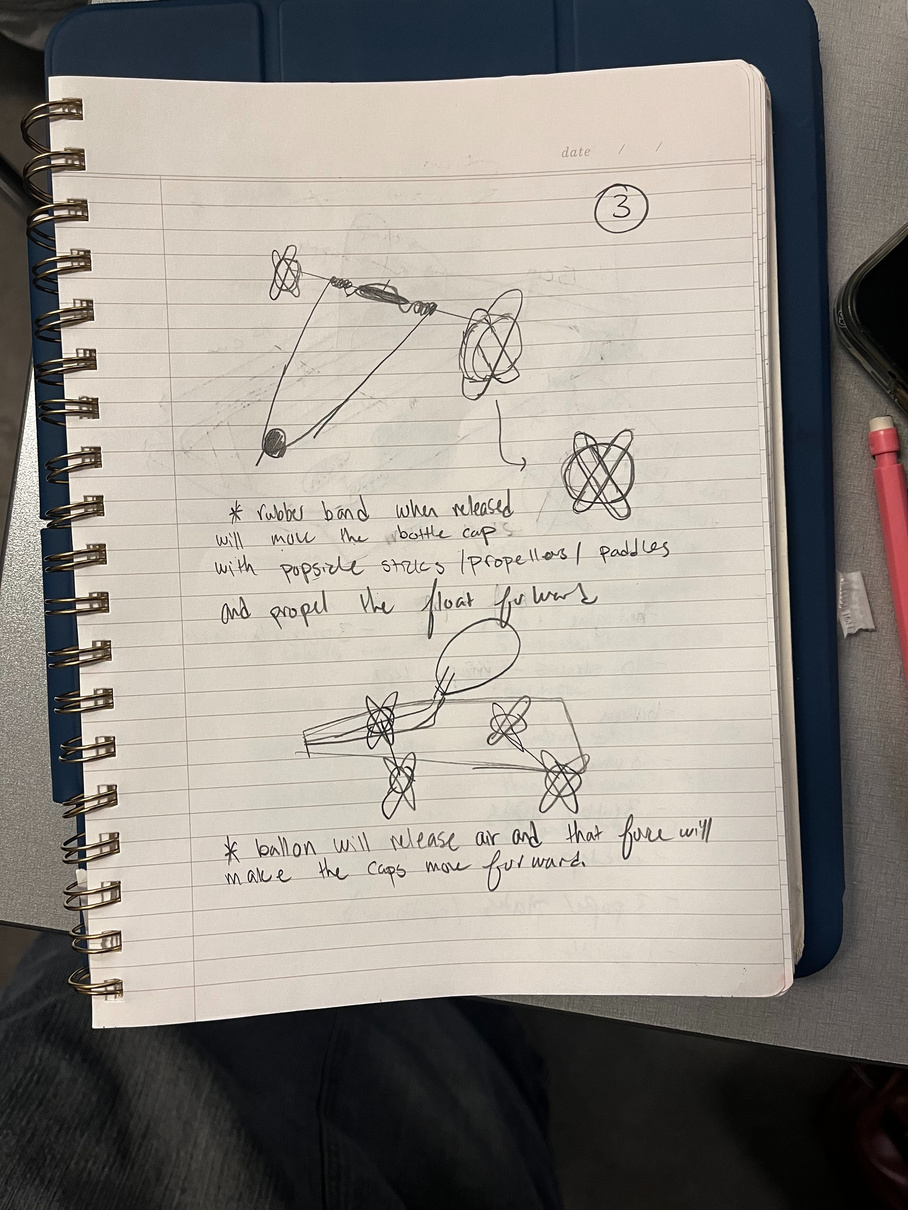 date / /
3
* rubber band when released
will move the bottle caps
with popsicle sticks /propellors/ paddles
and propel the float forward
* ballon will release air and that force will
make the caps move forward.